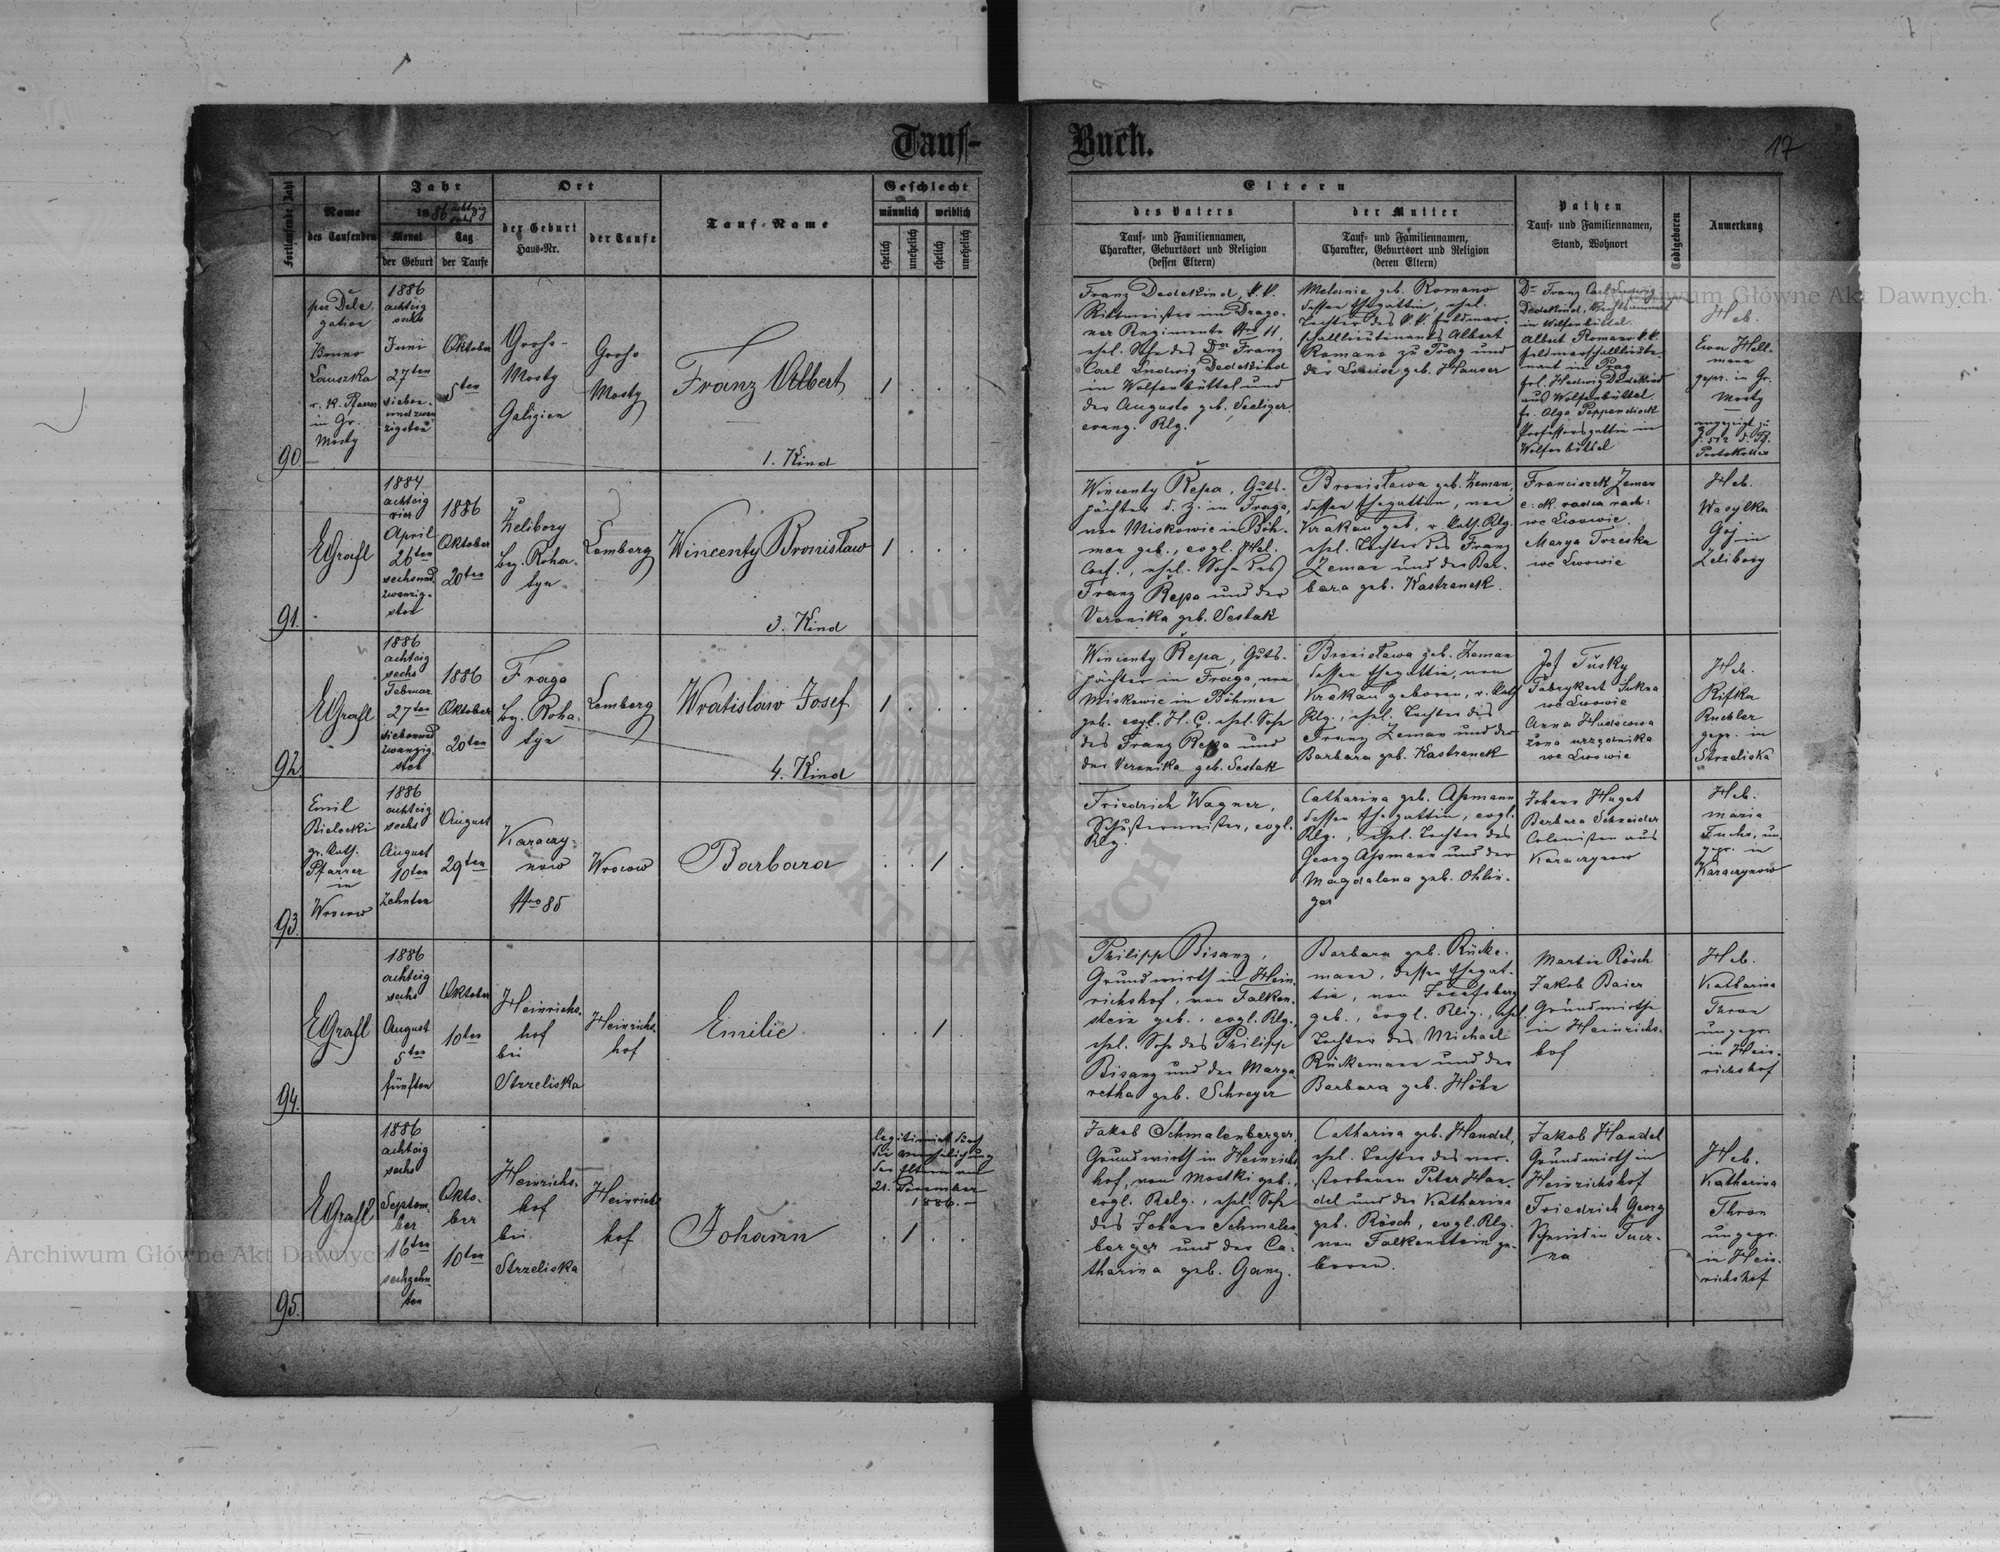 Tauf-
Buch.
17
Fortlaufende Zahl
Name
des Taufenden
Jahr
1886 achtzig
sechs
Monat
der Geburt
Tag
der Taufe
Ort
der Geburt
Haus-Nr.
der Taufe
Tauf-Name
Geschlecht
männlich
weiblich
ehelich
unehelich
ehelich
unehelich
Eltern
des Vaters
Tauf- und Familiennamen,
Charakter, Geburtsort und Religion
(dessen Eltern)
der Mutter
Tauf- und Familiennamen,
Charakter, Geburtsort und Religion
(deren Eltern)
Pathen
Tauf- und Familiennamen,
Stand, Wohnort
Todtgeboren
Anmerkung
90
per Dele-
gation
Bruno
Lauszka
r. k. Pfarrer
in Gr.
Mosty
1886
achtzig
sechs
Juni
27ten
sieben-
undzwan
zigsten
Oktober
5ten
Groß-
Mosty
Galizien
Groß
Mosty
Franz Albert
1. Kind
1 . . .
Franz Dedekind, k.k.
Rittmeister im Drago-
ner Regimente Nro 11,
ehel. Sohn des Dr Franz
Carl Ludwig Dedekind
in Wolfenbüttel und
der Auguste geb. Seeliger.
evang. Rlg.
Melanie geb. Romano
dessen Ehegattin, ehel.
Tochter des k.k. Feldmar-
schallieutenants Albert
Romano zu Prag und
der Louise geb. Hauser
Dr Franz Carl Ludwig
Dedekind,
in Wolfenbüttel.
Albert Romano k.k.
Feldmarschallieute-
nant in Prag
frl. Hedwig Dedekind
aus Wolfenbüttel
fr. Olga Poppendieck
Professorsgattin in
Wolfenbüttel
Heb.
Ewa Hell-
mann
gepr. in Gr.
Mosty
angezeigt zu
Protokolles
91.
EGrafl
1884
achtzig
vier
April
26ten
sechsund
zwanzig-
sten
1886
Oktober
20ten
Żelibory
bz. Roha-
tyn
Lemberg
Wincenty Bronisław
3. Kind
1 . . .
Wincenty Řepa, Guts-
pächter d. z. in Fraga,
von Miskowic in Böh-
men geb., evgl. Hel.
Conf., ehel. Sohn des
Franz Řepa und der
Veronika geb. Sestak
Bronisława geb. Zeman,
dessen Ehegattin, von
Krakau geb., r. kath. Rlg.
ehel. Tochter des Franz
Zeman und der Bar-
bara geb. Kastranek.
Franciszek Zeman
c. k. radca rach:
we Lwowie.
Marya Trzeska
we Lwowie
Heb.
Wasylka
Goj
in
Żelibory
92
EGrafl
1886
achtzig
sechs
Februar
27ten
siebenund
zwanzig-
sten
1886
Oktober
20ten
Fraga
bz. Roha-
tyn
Lemberg
Wratislaw Josef
4. Kind
1 . . .
Wincenty Řepa, Guts-
pächter in Fraga, von
Miskowic in Böhmen
geb. evgl. H.C. ehel. Sohn
des Franz Řepa und
der Veronika geb. Sestak
Bronisława geb. Zeman
dessen Ehegattin, von
Krakau geboren, r. kath
Rlg., ehel. Tochter des
Franz Zeman und der
Barbara geb. Kastranek
Jos Tusky
Fabrykant Sukna
we Lwowie
Anna Hudcowa
żona urzędnika
we Lwowie
Heb.
Rifka
Ruchler
gepr. in
Strzeliska
93.
Emil
Bielecki
gr. kath.
Pfarrer
in
Wrocow
1886
achtzig
sechs
August
10ten
zehnten
August
29ten
Karaczy-
now
Nro 85
Wrocow
Barbara
. . 1 .
Friedrich Wagner,
Schustermeister, evgl.
Rlg.
Catharina geb. Aßmann
dessen Ehegattin, evgl.
Rlg., ehel. Tochter des
Georg Aßmann und der
Magdalena geb. Ohlin-
ger
Johann Huget
Barbara Schneider
Colonisten aus
Karaczynow
Heb.
Maria
Fuchs, un-
gepr. in
Karaczynow
94.
EGrafl
1886
achtzig
sechs
August
5ten
fünften
Oktober
10ten
Heinrichs-
hof
bei
Strzeliska
Heinrichs-
hof
Emilie
. . 1 .
Philipp Bisanz,
Grundwirth in Hein-
richshof, von Falken-
stein geb., evgl. Rlg.,
ehel. Sohn des Philipp
Bisanz und der Marga-
retha geb. Schreyer
Barbara geb. Rücke-
mann, dessen Ehegat-
tin, von Josefsberg
geb., evgl. Rlig., ehel.
Tochter des Michael
Rückemann und der
Barbara geb. Höhn
Martin Rösch
Jakob Baier
Grundwirthe
in Heinrichs-
hof
Heb.
Katharina
Thron
ungepr.
in Hein-
richshof
95.
EGrafl
1886
achtzig
sechs
Septem-
ber
16ten
sechzehn-
ten
Okto-
ber
10ten
Heinrichs-
hof
bei
Strzeliska
Heinrichs
hof
Johann
legitimirt durch
die Verehelichung
der Eltern am
21. November
1886.—
. 1 . .
Jakob Schmalenberger,
Grundwirth in Heinrichs
hof, von Mostki geb.,
evgl. Relg., ehel. Sohn
des Johann Schmalen-
berger und der Ca-
tharina geb. Ganz.
Catharina geb. Handel,
ehel. Tochter des ver-
storbenen Peter Han-
del und der Katharina
geb. Rösch, evgl. Rlg.
von Falkenstein ge-
boren.
Jakob Handel
Grundwirth in
Heinrichshof
Friedrich Georg
Schmid in Tucz-
na
Heb.
Katharina
Thron
ungepr.
in Hein-
richshof
Archiwum Główne Akt Dawnych
Archiwum Główne Akt Dawnych